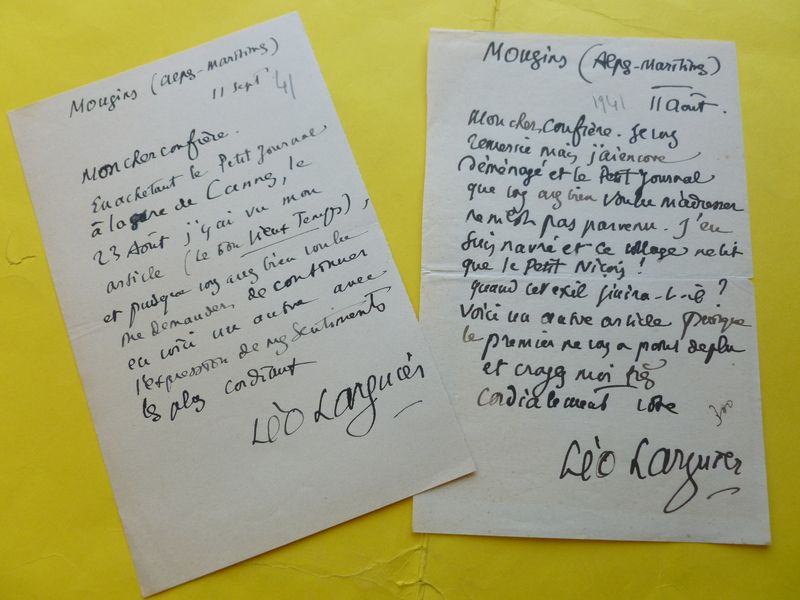 Mougins (Alpes-Maritimes)
11 Sept 41
Mon cher confrère.
En achetant le Petit Journal
à la gare de Cannes, le
23 Août j'y ai vu mon
article (Le bon vieux Temps),
et puisque vous avez bien voulu
me demander de continuer
en voici un autre avec
l'expression de mes sentiments
les plus cordiaux
Léo Larguier
Mougins (Alpes-Maritimes)
1941 11 Août.
Mon cher Confrère. Je vous
remercie mais j'ai encore
déménagé et le Petit Journal
que vous avez bien voulu m'adresser
ne m'est pas parvenu. J'en
suis navré et ce village ne lit
que le Petit Niçois !
quand cet exil finira-t-il ?
Voici un autre article puisque
le premier ne vous a point déplu
et croyez moi très
cordialement votre
Léo Larguier